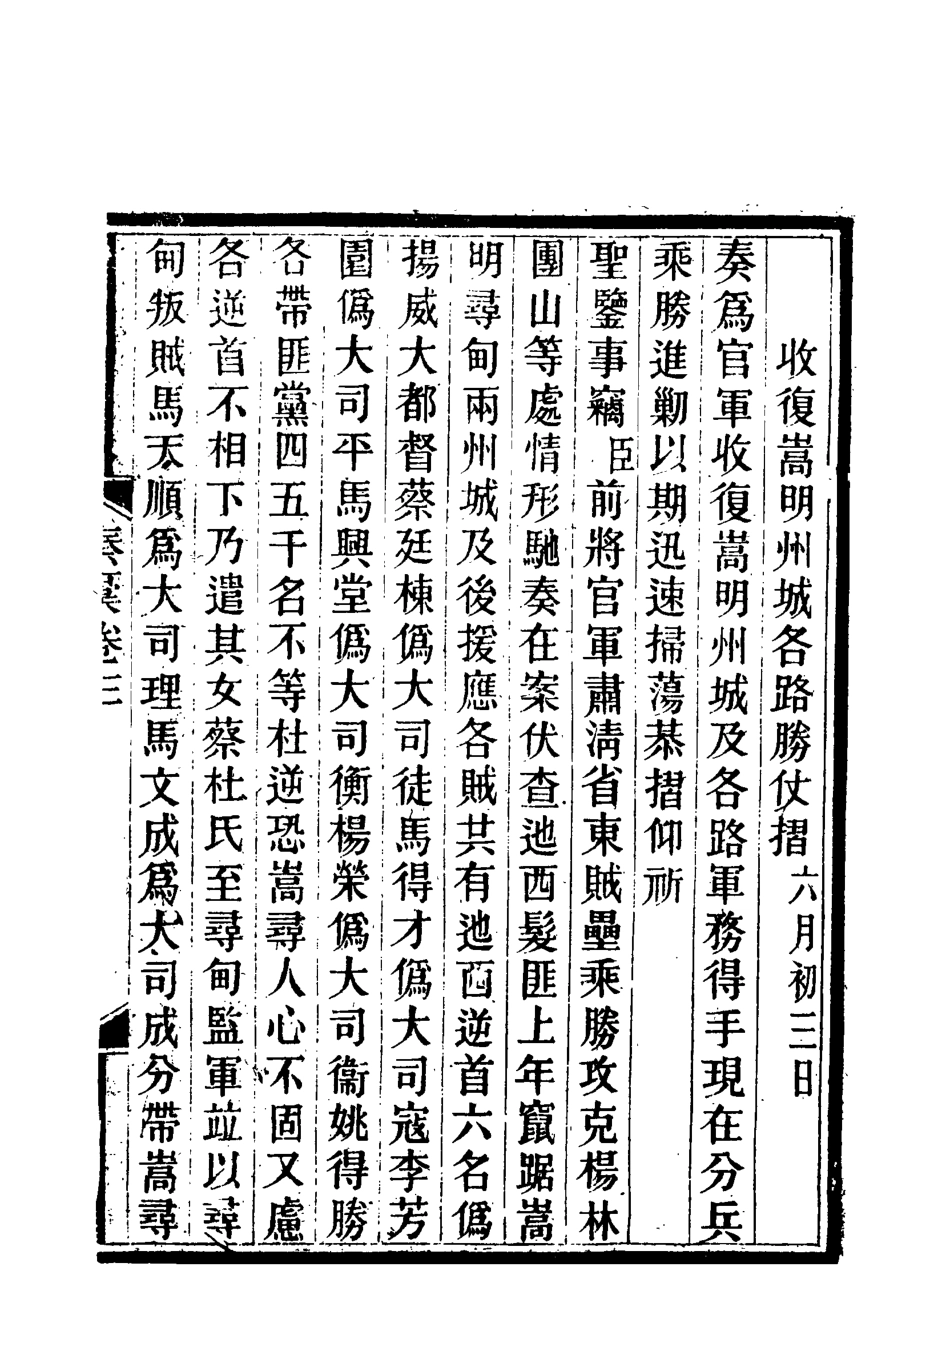 收復嵩明州城各路勝仗摺六月初三日
奏爲官軍收復嵩明州城及各路軍務得手現在分兵
乘勝進勦以期迅速掃蕩恭摺仰祈
聖鑒事竊臣前將官軍肅清省東賊壘乘勝攻克楊林
團山等處情形馳奏在案伏查迤西髮匪上年竄踞嵩
明尋甸兩州城及後援應各賊共有迤酉逆首六名僞
揚威大都督蔡廷棟僞大司徒馬得才僞大司寇李芳
園僞大司平馬興堂僞大司衡楊榮僞大司衞姚得勝
各帶匪黨四五千名不等杜逆恐嵩尋人心不固又慮
各逆首不相下乃遣其女蔡杜氏至尋甸監軍竝以尋
甸叛賊馬天順爲大司理馬文成爲大司成分帶嵩尋
奏稾卷三